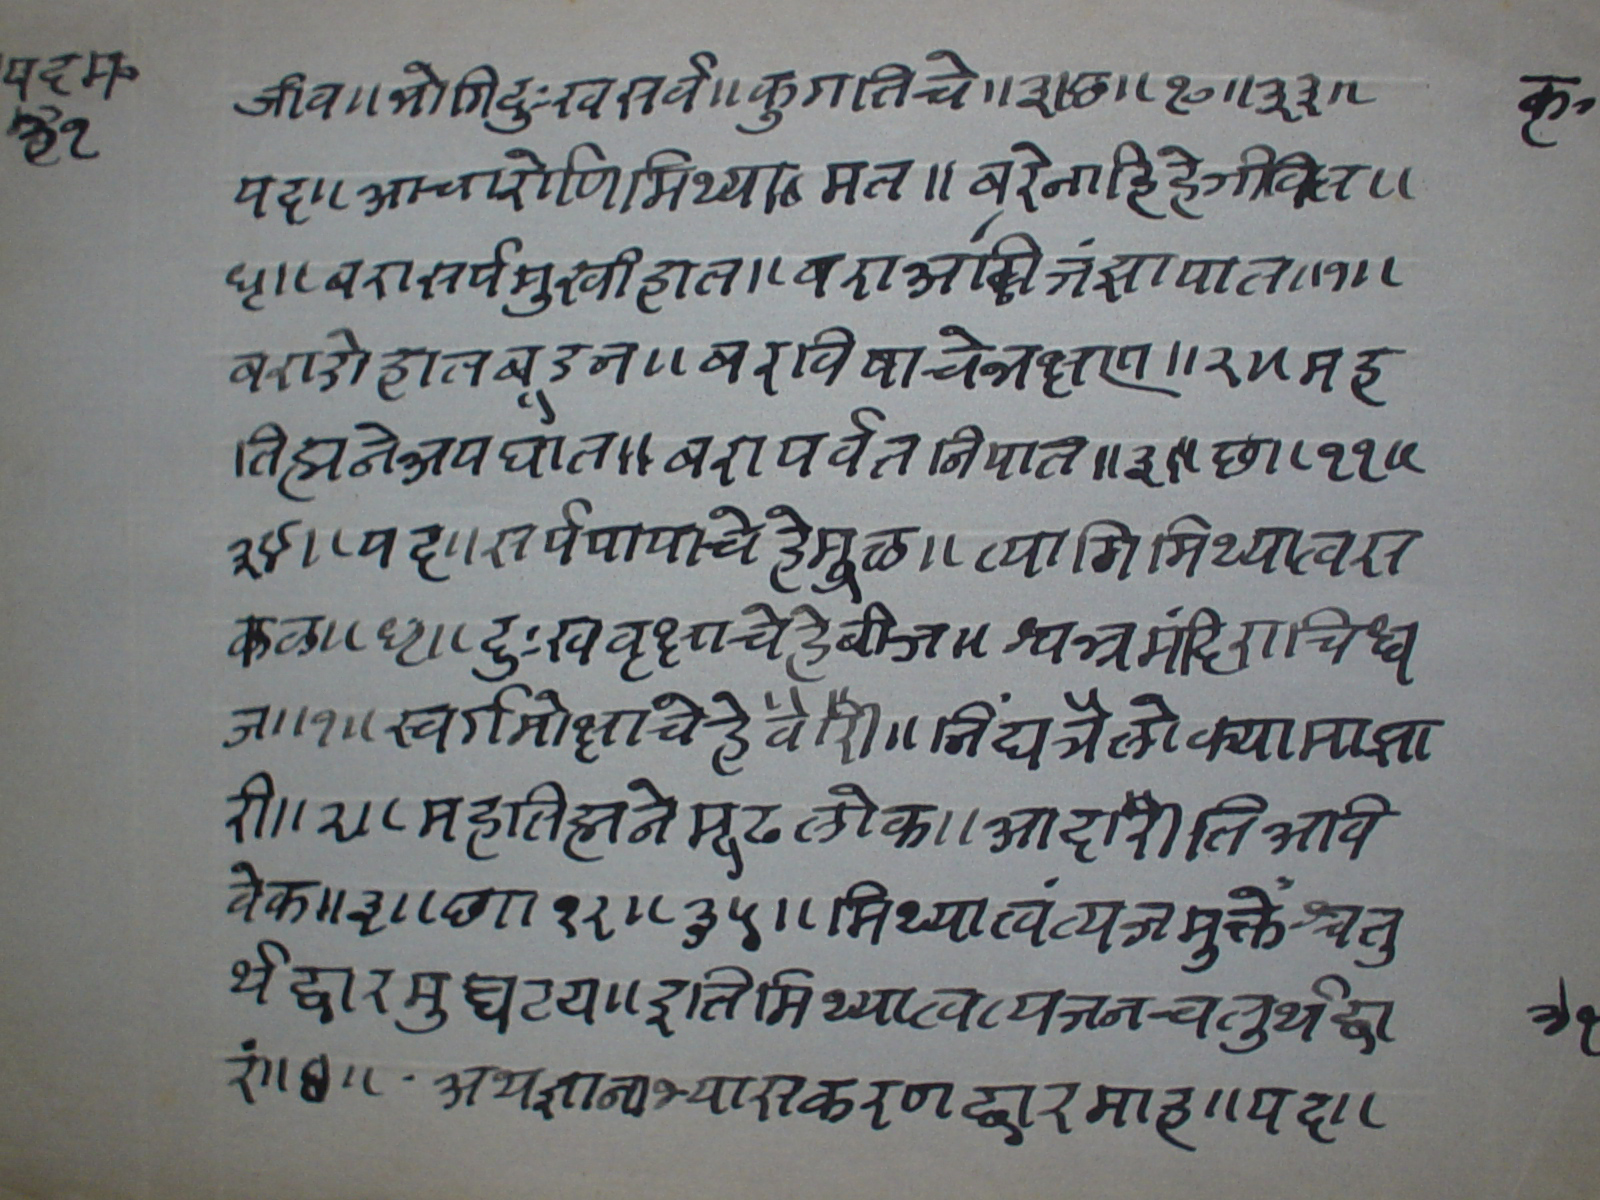 जीव॥भोगिदुःखसर्व॥कुगतिचे॥३॥छ॥१०॥३३॥
पद॥आचारोणिमिथ्यात्वमत॥बरेनाहिहेजीवित॥
धृ॥बरासर्पमुखीहात॥बराअग्निझंपापात॥१॥
बराडोहातबूडन॥बरविषाचेभक्षण॥२॥मह
तिह्मनेअपघात॥बरापर्वतनिपात॥३॥छ॥११॥
३४॥पद॥सर्पपापाचेहेमुळ॥त्यागिमिथ्यात्वस
कळ॥धृ॥दुःखवृक्षाचेहेबीज॥श्वभ्रमंदिराचिध्व
ज॥१॥स्वर्गमोक्षाचेहेवैरी॥निंद्यत्रैलोक्यामाझा
री॥२॥महतिह्मनेमूढलोक॥आदरीतिअवि
वेक॥३॥छ॥१२॥३५॥मिथ्यात्वंत्यजमुक्तेश्चतु
र्थद्वारमुद्घटय॥इतिमिथ्यात्वत्यजनचतुर्थद्वा
रं॥४॥अथज्ञानाभ्यासकरणद्वारमाह॥पद॥